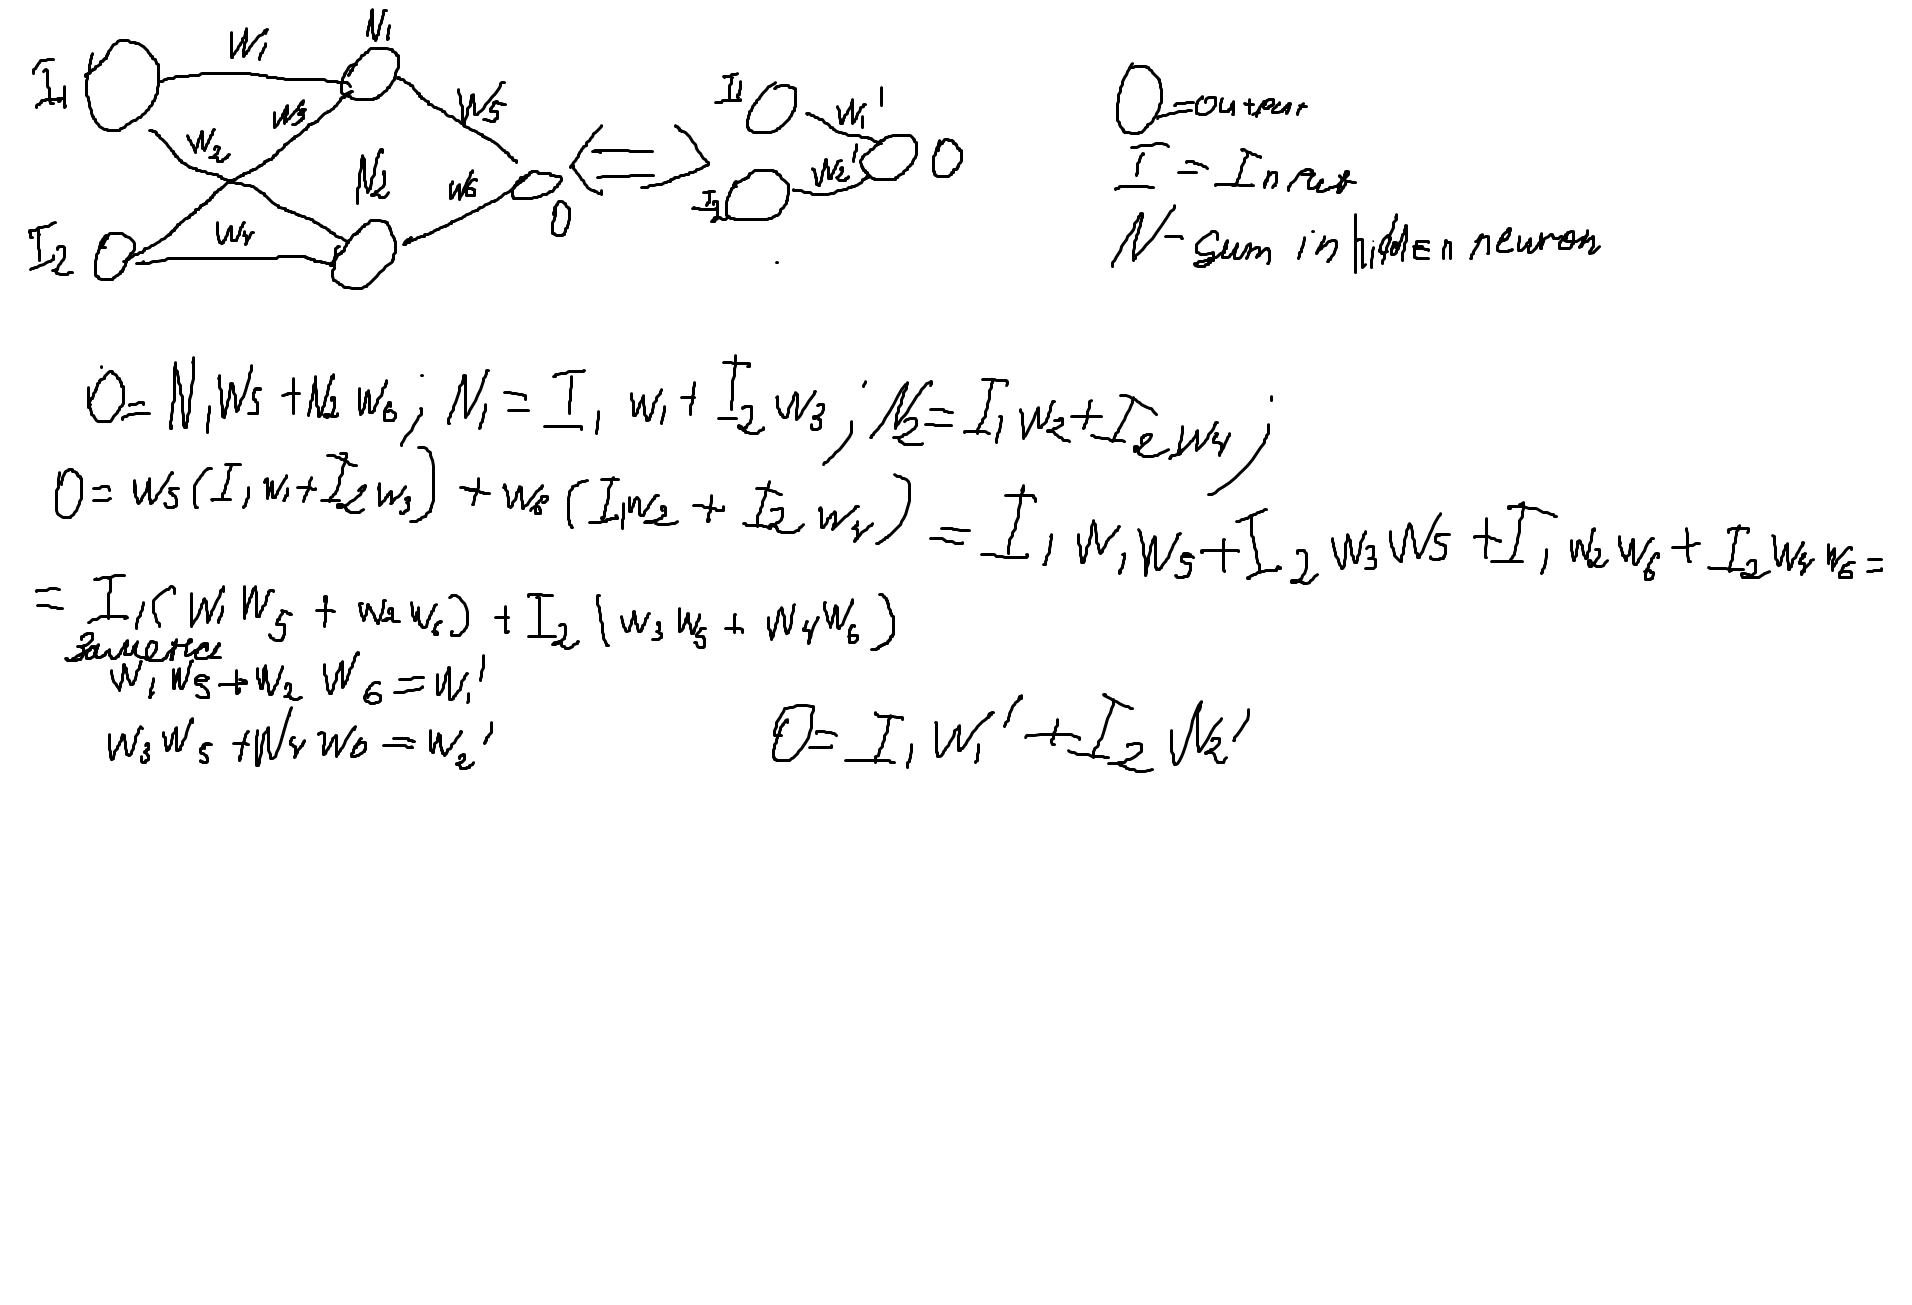 I1 W1 N1
W3 W5
W2
N2 W6
I2 W4 O
<=>
I1 W1'
I2 W2' O
O = output
I = Input
N - sum in hidden neuron
O = N1W5 + N2W6; N1 = I1 w1 + I2 w3; N2 = I1 w2 + I2 w4;
O = w5(I1w1 + I2w3) + w6(I1w2 + I2w4) = I1w1w5 + I2w3w5 + I1w2w6 + I2w4w6 =
= I1(w1w5 + w2w6) + I2(w3w5 + w4w6)
Замена
w1w5 + w2w6 = w1'
w3w5 + w4w6 = w2'
O = I1w1' + I2w2'